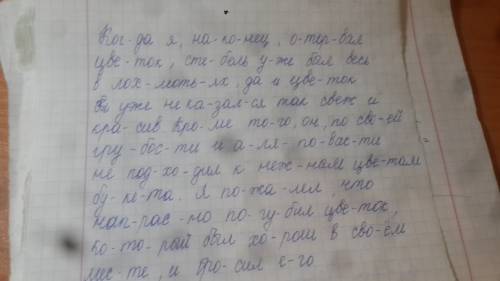 Ког-да я, на-ко-нец, о-тор-вал
цве-ток, сте-бель у-же был весь
в лох-моть-ях, да и цве-ток
уже не ка-зал-ся так свеж и
кра-сив. Кро-ме то-го, он, по сво-ей
гру-бос-ти и а-ля-по-вас-ти
не под-хо-дил к неж-ным цве-там
бу-ке-та. Я по-жа-лел, что
нап-рас-но по-гу-бил цве-ток,
ко-то-рый был хо-рош в сво-ём
мес-те, и бро-сил е-го